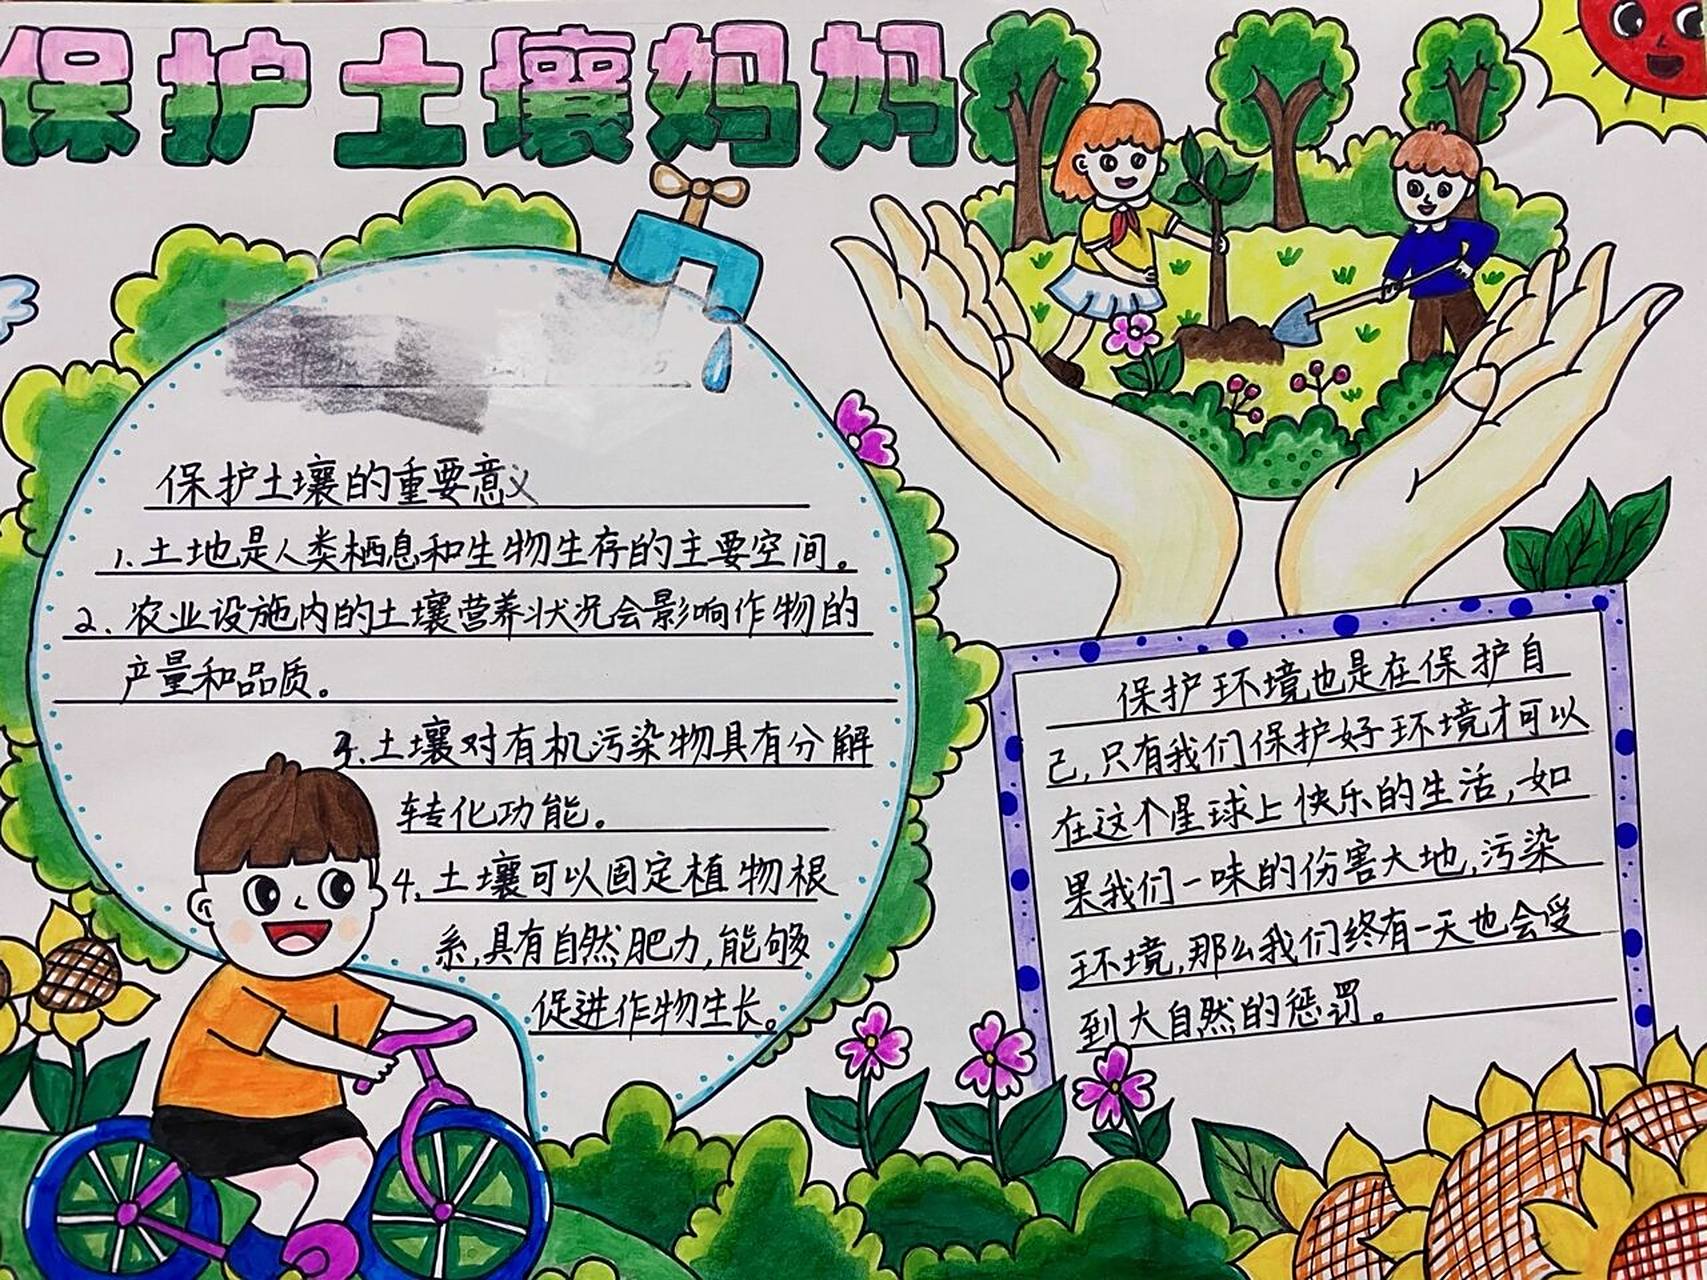 保护土壤妈妈
保护土壤的重要意义
1.土地是人类栖息和生物生存的主要空间。
2.农业设施内的土壤营养状况会影响作物的
产量和品质。
3.土壤对有机污染物具有分解
转化功能。
4.土壤可以固定植物根
系,具有自然肥力,能够
促进作物生长。
保护环境也是在保护自
己,只有我们保护好环境才可以
在这个星球上快乐的生活,如
果我们一味的伤害大地,污染
环境,那么我们终有一天也会受
到大自然的惩罚。